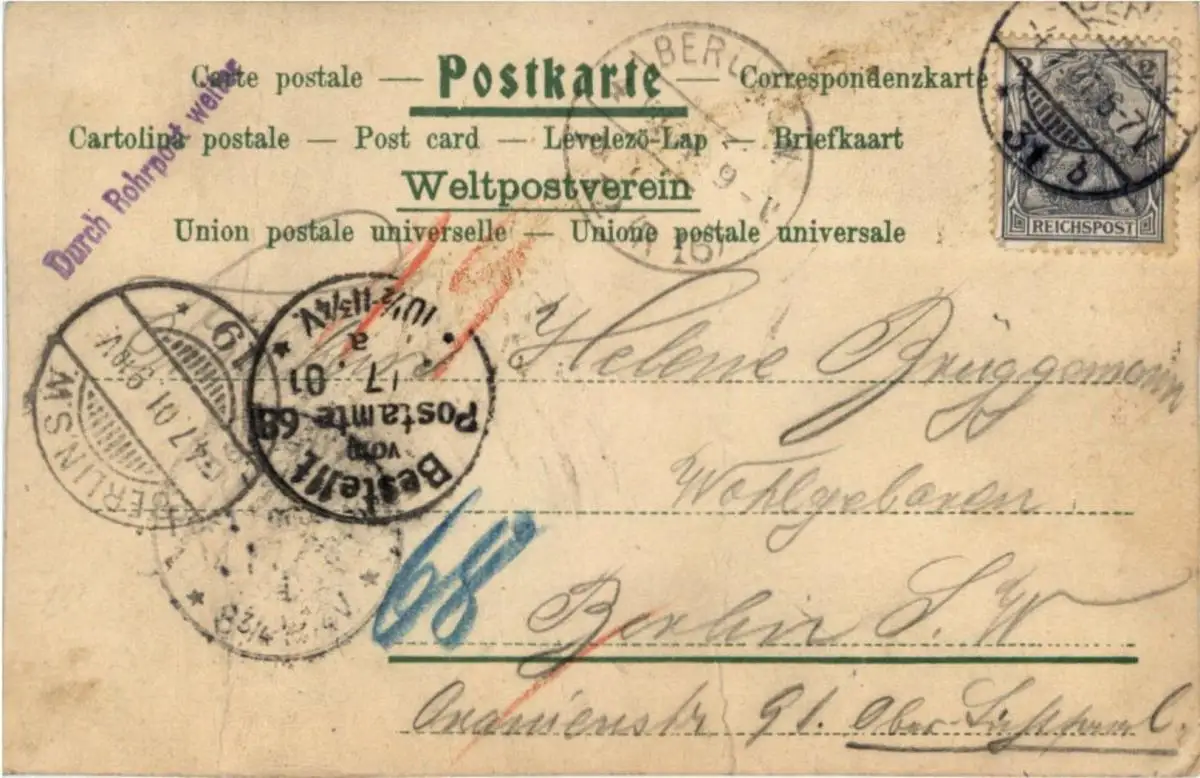 Carte postale — Postkarte — Correspondenzkarte
Cartolina postale — Post card — Levelezö-Lap — Briefkaart
Weltpostverein
Union postale universelle — Unione postale universale
Durch Rohrpost weiter
2 2
REICHSPOST
31 b
BERLIN SW
19
4.7.01 9-10V.
Bestellt
vom
Postamte 68
7.01
a
10½-11¾V.
68
Helene Brüggemann
Wohlgeboren
Berlin S.W
Oranienstr 91.